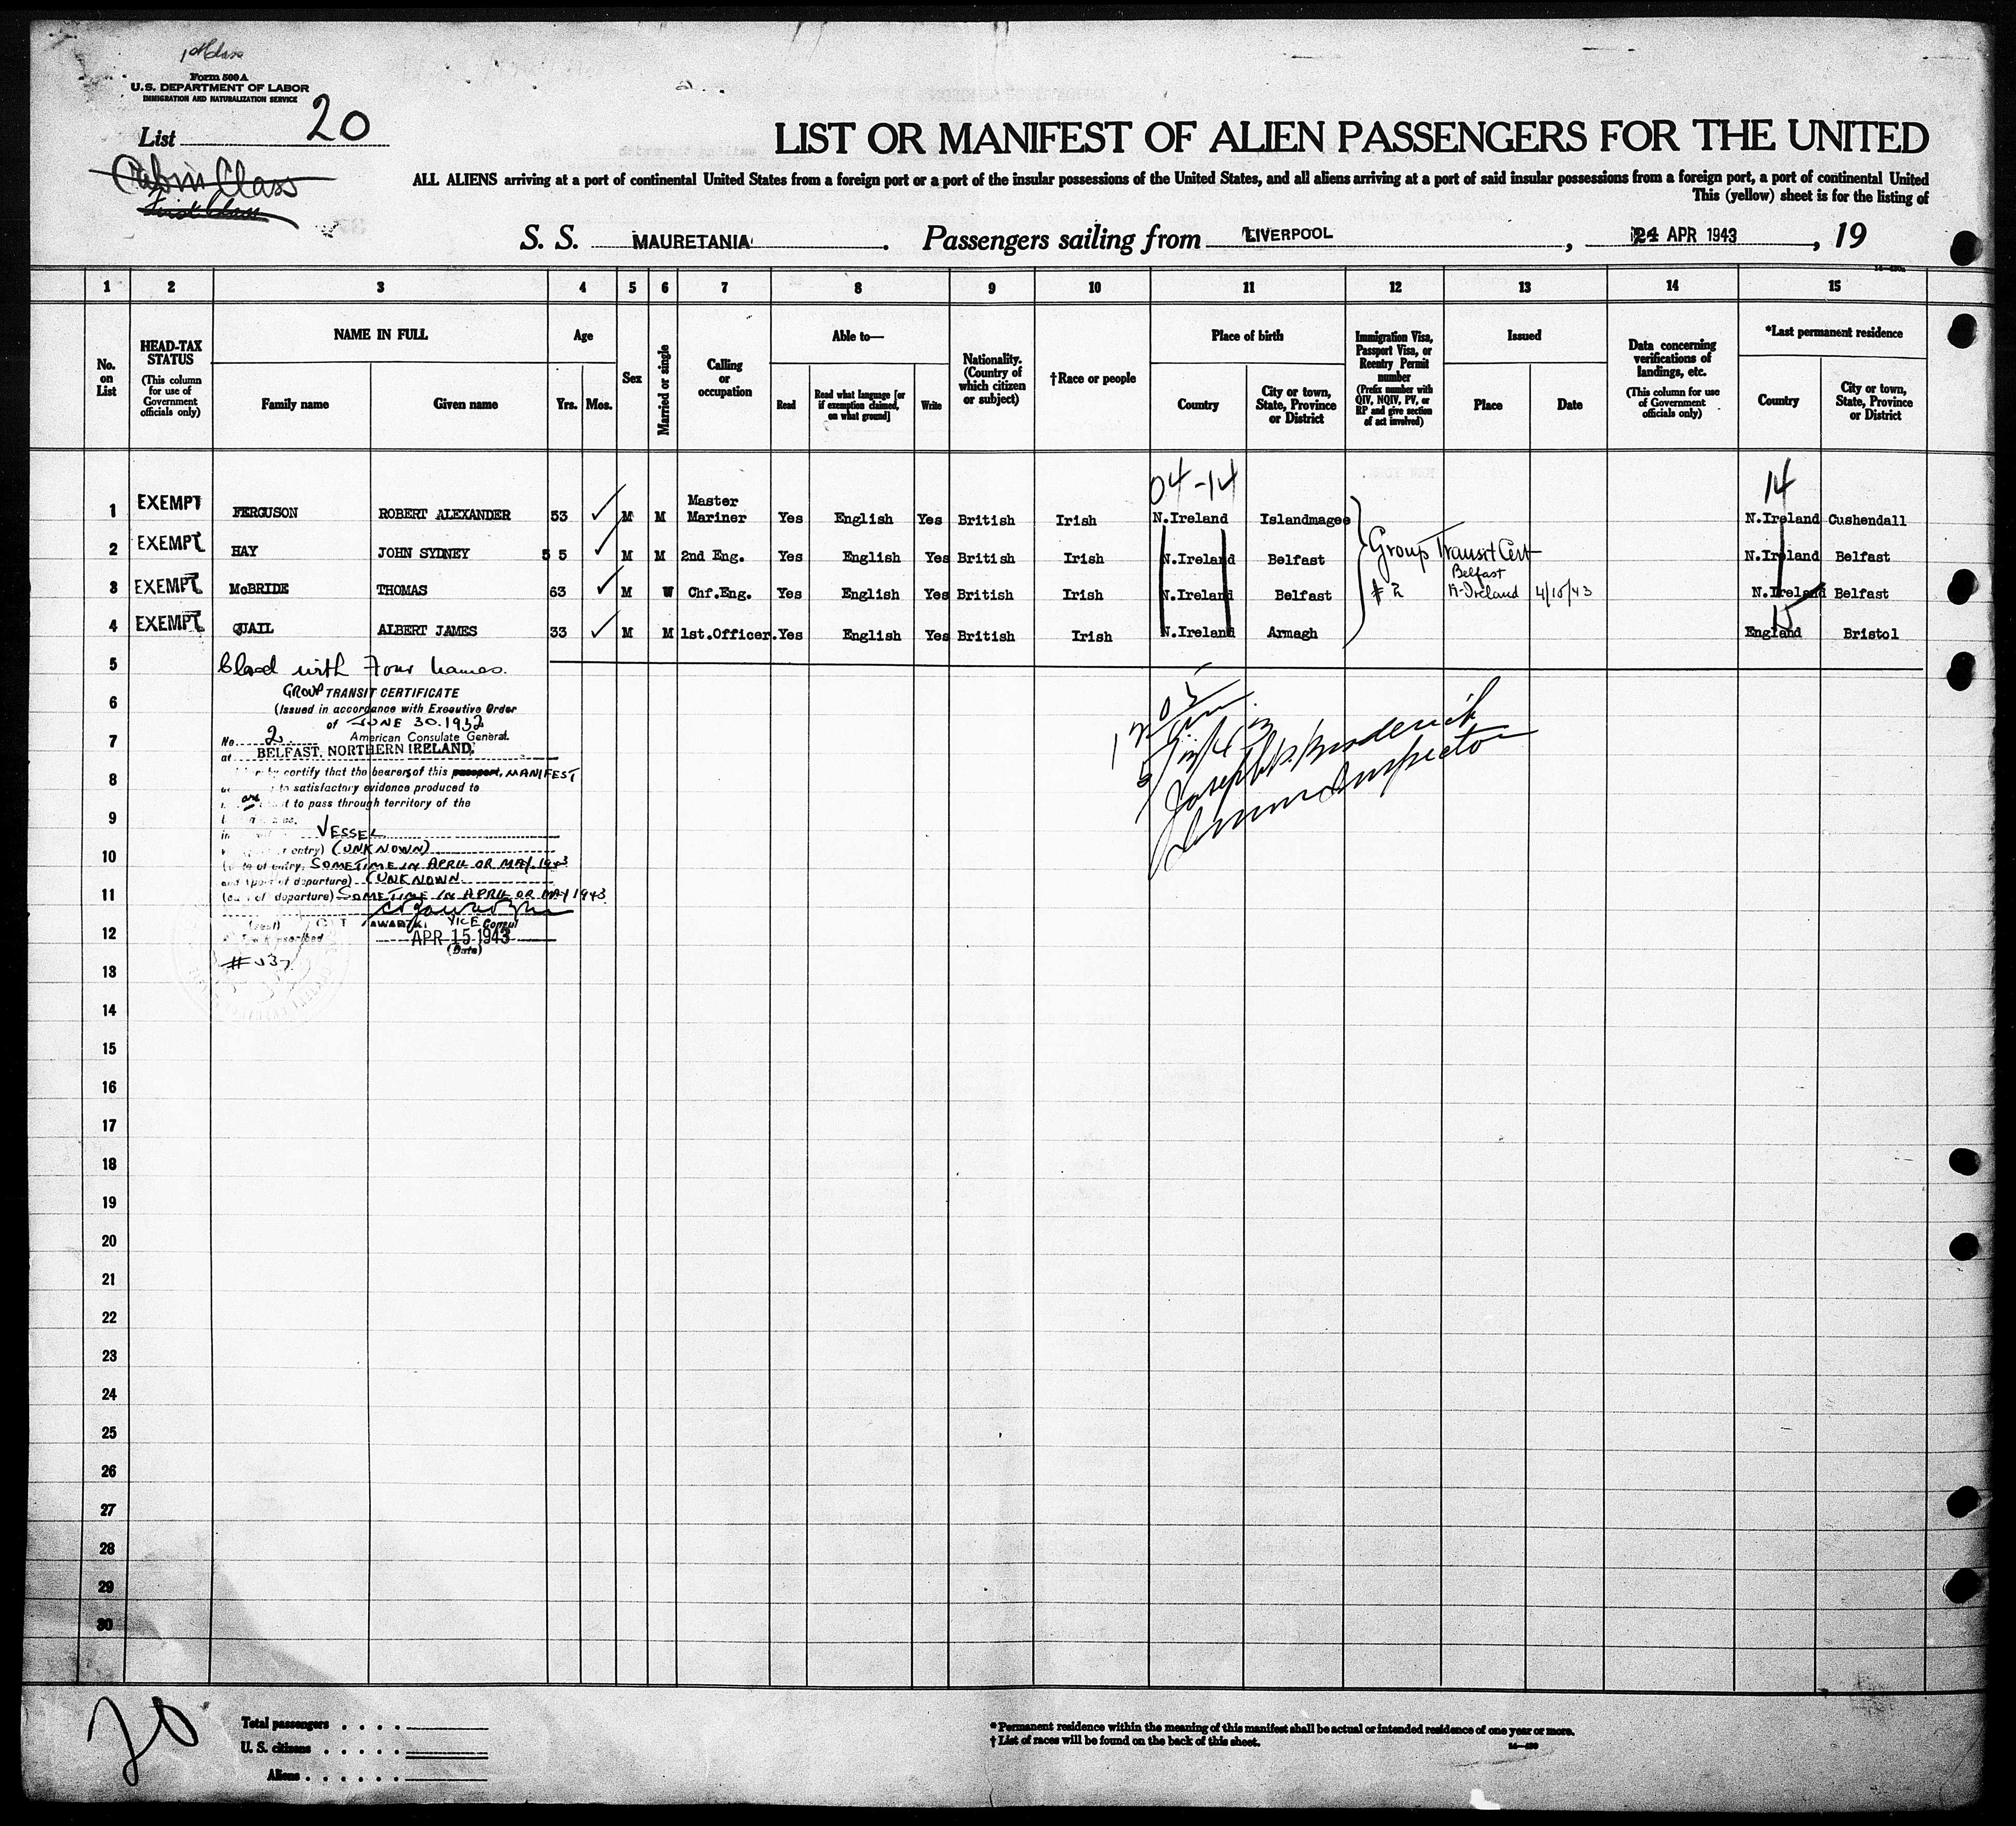 1st Class
Form 500 A
U.S. DEPARTMENT OF LABOR
IMMIGRATION AND NATURALIZATION SERVICE
List 20
Cabin Class
First Class
LIST OR MANIFEST OF ALIEN PASSENGERS FOR THE UNITED
ALL ALIENS arriving at a port of continental United States from a foreign port or a port of the insular possessions of the United States, and all aliens arriving at a port of said insular possessions from a foreign port, a port of continental United
This (yellow) sheet is for the listing of
S. S. MAURETANIA. Passengers sailing from LIVERPOOL, 24 APR 1943, 19
1 2 3 4 5 6 7 8 9 10 11 12 13 14 15
No. on List
HEAD-TAX STATUS
(This column for use of Government officials only)
NAME IN FULL
Family name
Given name
Age
Yrs. Mos.
Sex
Married or single
Calling or occupation
Able to—
Read
Read what language [or if exemption claimed, on what ground]
Write
Nationality. (Country of which citizen or subject)
†Race or people
Place of birth
Country
City or town, State, Province or District
Immigration Visa, Passport Visa, or Reentry Permit number
(Prefix number with QIV, NQIV, PV, or RP and give section of act involved)
Issued
Place
Date
Data concerning verifications of landings, etc.
(This column for use of Government officials only)
*Last permanent residence
Country
City or town, State, Province or District
04-14
14
1 EXEMPT FERGUSON ROBERT ALEXANDER 53 M M Master Mariner Yes English Yes British Irish N.Ireland Islandmagee N.Ireland Cushendall
2 EXEMPT HAY JOHN SYDNEY 5 5 M M 2nd Eng. Yes English Yes British Irish N.Ireland Belfast Group Transit Cert N.Ireland Belfast
3 EXEMPT McBRIDE THOMAS 63 M W Chf.Eng. Yes English Yes British Irish N.Ireland Belfast # 2 Belfast N-Ireland 4/15/43 N.Ireland Belfast
15
4 EXEMPT QUAIL ALBERT JAMES 33 M M 1st.Officer. Yes English Yes British Irish N.Ireland Armagh England Bristol
5 Closed with Four names.
GROUP TRANSIT CERTIFICATE
(Issued in accordance with Executive Order
6
of JUNE 30.1932
No. 2. American Consulate General.
7
at BELFAST, NORTHERN IRELAND,
certify that the bearers of this passport, MANIFEST
8
to satisfactory evidence produced to
are to pass through territory of the
9
VESSEL
entry) (UNKNOWN)
10
of entry, SOMETIME IN APRIL OR MAY, 1943
and (port of departure) (UNKNOWN.
11
of departure) SOMETIME IN APRIL OR MAY 1943
(seal) VICE Consul
12
APR 15 1943
(Date)
13
Joseph Broderick
Immun Inspector
14
15
16
17
18
19
20
21
22
23
24
25
26
27
28
29
30
20
Total passengers
U. S. citizens
Aliens
* Permanent residence within the meaning of this manifest shall be actual or intended residence of one year or more.
† List of races will be found on the back of this sheet.